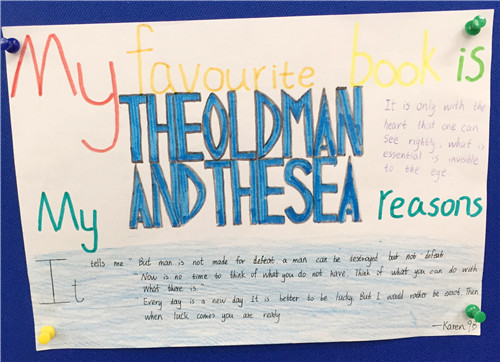 My favourite book is
THE OLD MAN
AND THE SEA
It is only with the
heart that one can
see rightly, what is
essential is invisible
to the eye.
My reasons
It tells me " But man is not made for defeat a man can be destroyed but not defeat
"Now is no time to think of what you do not have. Think of what you can do with
what there is."
Every day is a new day. It is better to be lucky. But I would rather be exact. Then
when luck comes you are ready
—Karen